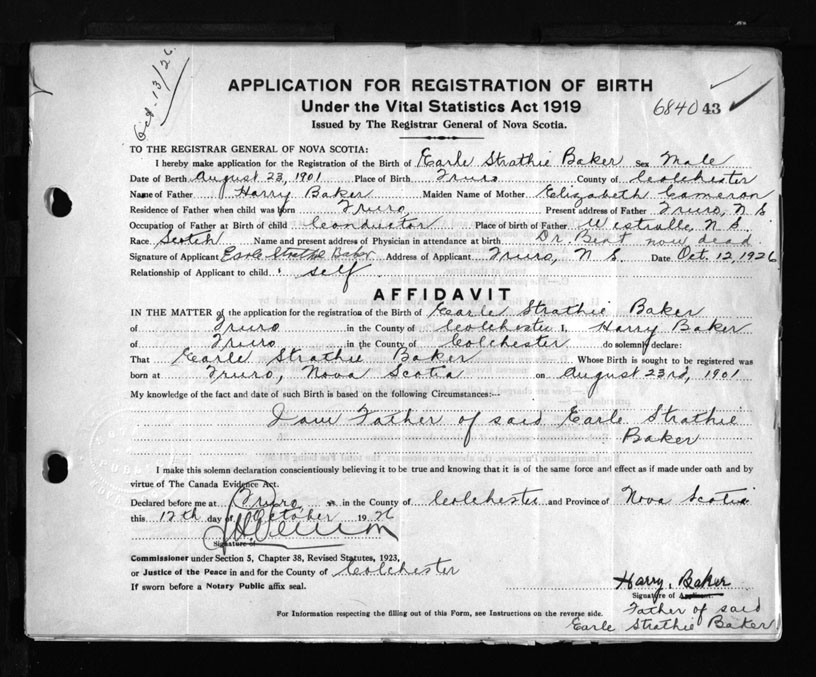 Oct. 13/26
APPLICATION FOR REGISTRATION OF BIRTH
Under the Vital Statistics Act 1919
684043
Issued by The Registrar General of Nova Scotia.
TO THE REGISTRAR GENERAL OF NOVA SCOTIA:
I hereby make application for the Registration of the Birth of Earle Strathie Baker Sex Male
Date of Birth August 23, 1901 Place of Birth Truro County of Colchester
Name of Father Harry Baker Maiden Name of Mother Elizabeth Cameron
Residence of Father when child was born Truro Present address of Father Truro, N S
Occupation of Father at Birth of child Conductor Place of birth of Father N. S.
Race Scotch Name and present address of Physician in attendance at birth Dr. Bent now dead.
Signature of Applicant Earle Strathie Baker Address of Applicant Truro, N S. Date Oct. 12, 1926
Relationship of Applicant to child self.
AFFIDAVIT
IN THE MATTER of the application for the registration of the Birth of Earle Strathie Baker
of Truro in the County of Colchester I, Harry Baker
of Truro in the County of Colchester do solemnly declare:
That Earle Strathie Baker Whose Birth is sought to be registered was
born at Truro, Nova Scotia on August 23rd, 1901
My knowledge of the fact and date of such Birth is based on the following Circumstances:--
I am Father of said Earle Strathie
Baker
I make this solemn declaration conscientiously believing it to be true and knowing that it is of the same force and effect as if made under oath and by
virtue of The Canada Evidence Act.
Declared before me at Truro in the County of Colchester and Province of Nova Scotia
this 12th day of October 1926
Signature of
Commissioner under Section 5, Chapter 38, Revised Statutes, 1923,
or Justice of the Peace in and for the County of Colchester
If sworn before a Notary Public affix seal.
Harry Baker
Signature of Applicant.
For Information respecting the filling out of this Form, see Instructions on the reverse side.
Father of said
Earle Strathie Baker